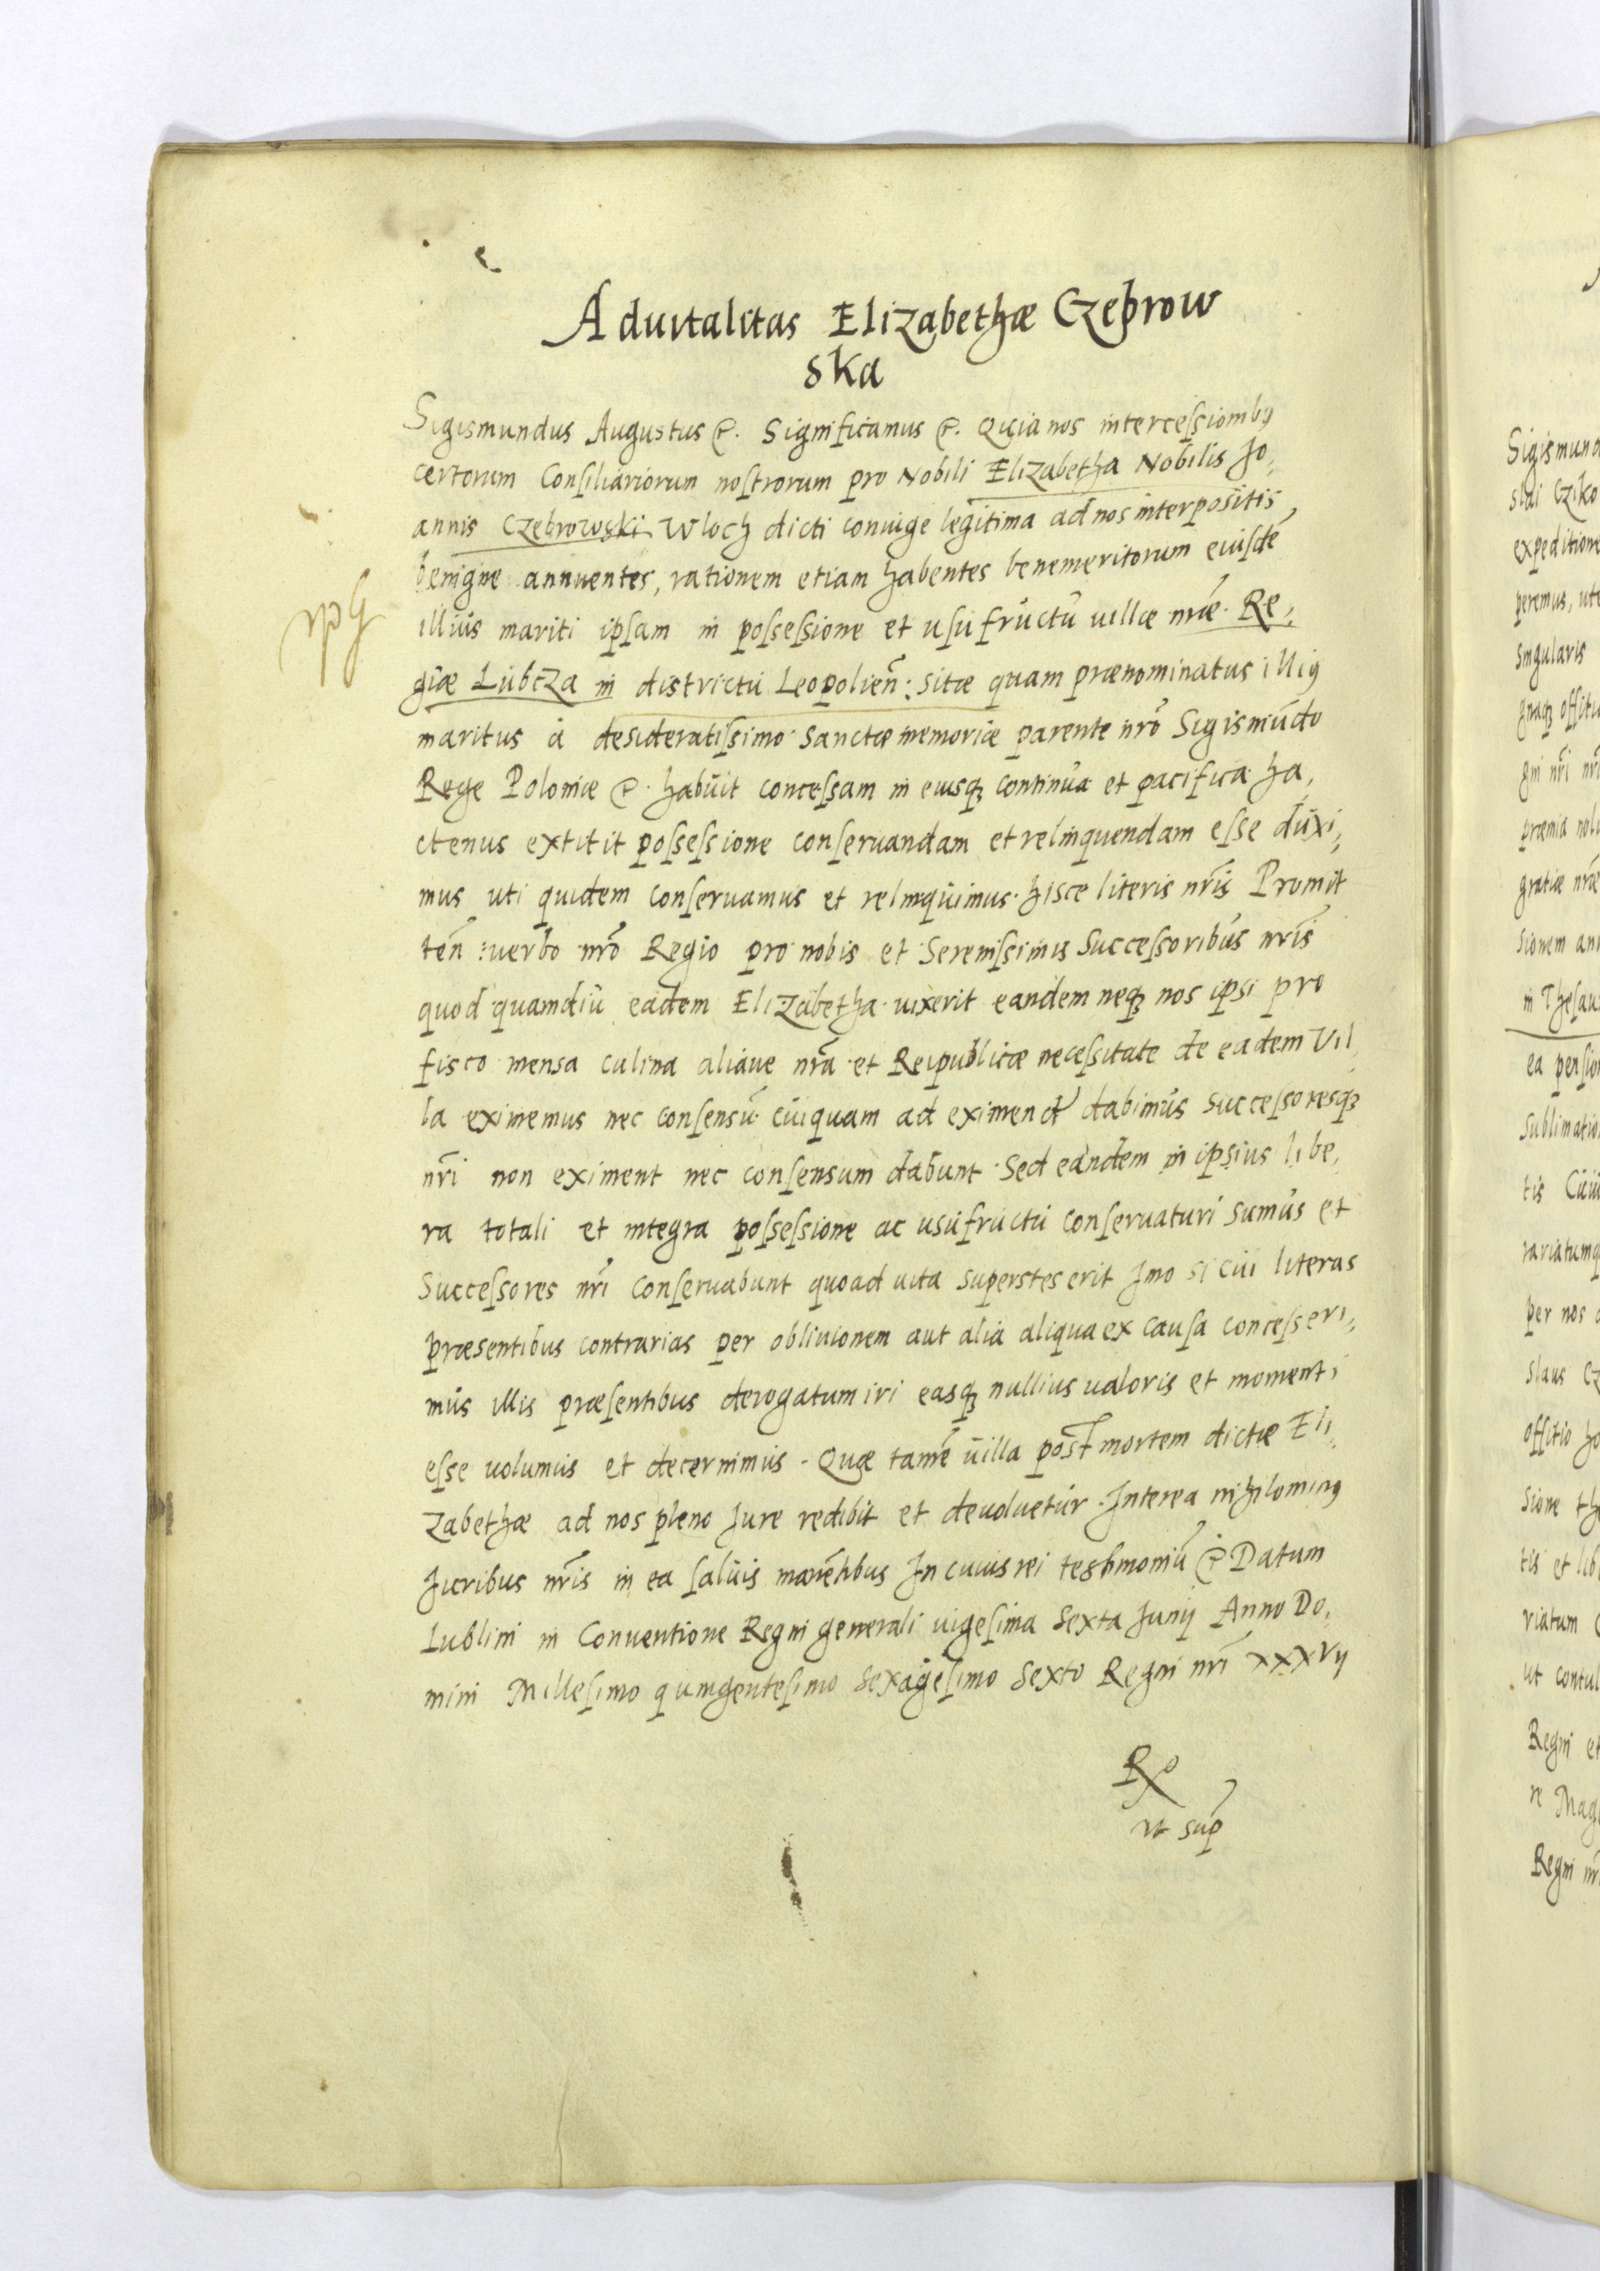 Aduitalitas Elizabethæ Czebrow
ska
Sigismundus Augustus etc. Significamus etc. Quia nos intercessionibus
certorum Consiliariorum nostrorum pro Nobili Elizabetha Nobilis Jo,
annis Czebrowski Wloch dicti coniuge legitima ad nos interpositis
benigne annuentes, rationem etiam habentes benemeritorum eiusdē
illius mariti ipsam in possessione et usufructu uillæ nræ Re,
giæ Lubcza in districtu Leopolien: sitæ quam prænominatus illius
maritus a desideratissimo sanctæ memoriæ parente nrō Sigismūdo
Rege Poloniæ etc. habuit concessam in eiusq continua et pacifica ha,
ctenus extitit possessione conseruandam et relinquendam esse duxi,
mus uti quidem conseruamus et relinquimus hisce literis nrīs Promit
teñ: uerbo nrō Regio pro nobis et Serenissimis Successoribus nrīs
quod quamdiu eadem Elizabetha uixerit eandem neq nos ipsi pro
fisco mensa culina aliaue nrā et Reipublicæ necessitate de eadem Vil
la eximemus nec consensū cuiquam ad eximend dabimus successoresq
nrī non eximent nec consensum dabunt Sed eandem in ipsius libe,
ra totali et integra possessione ac usufructu conseruaturi sumus et
Successores nrī conseruabunt quoad uita superstes erit Imo si cui literas
præsentibus contrarias per obliuionem aut alia aliqua ex causa concesseri,
mus illis præsentibus derogatum iri easq nullius ualoris et momenti
esse uolumus et decernimus. Quæ tamē uilla post mortem dictæ Eli,
zabethæ ad nos pleno Jure redibit et deuoluetur. Interea nihilominus
Juribus nrīs in ea saluis manētibus In cuius rei testimoniū etc Datum
Lublini in Conuentione Regni generali uigesima Sexta Junij Anno Do,
mini Millesimo quingentesimo Sexagesimo Sexto Regni nrī xxxvij
ut sup
Sigismund
expeditione
peremus, ut
singularis
gni nrī nrī
gratiæ nræ
sionem
ea pension
tis
per nos
offitio
sione
tis et lib
riatum
ut contul
Regni et
re Mag
Regni nr